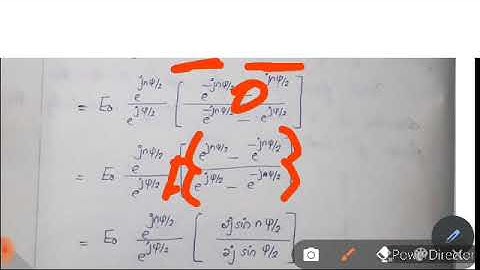 = E₀ e^{jnψ/2} / e^{jψ/2} [ e^{-jnψ/2} - e^{jnψ/2} / e^{-jψ/2} - e^{jψ/2} ]
= E₀ e^{jnψ/2} / e^{jψ/2} { e^{jnψ/2} - e^{-jnψ/2} / e^{jψ/2} - e^{-jψ/2} }
= E₀ e^{jnψ/2} / e^{jψ/2} [ 2j sin nψ/2 / 2j sin ψ/2 ]
PowerDirector